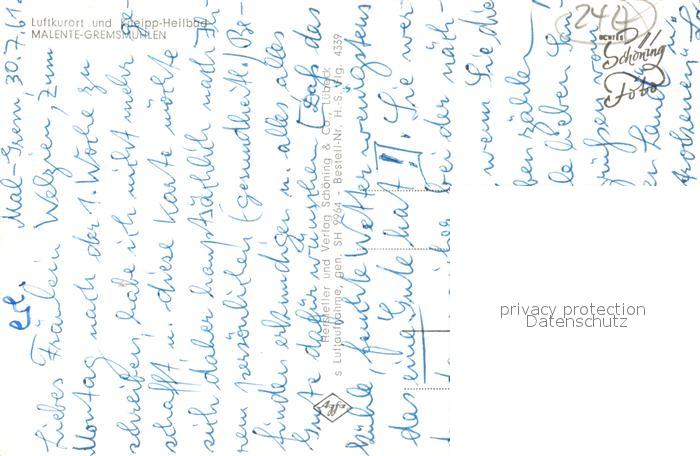 Luftkurort und Kneipp-Heilbad
MALENTE-GREMSMÜHLEN
244
ECHTES
Schöning
Foto
Mal-Grem 30.7.61
Liebes Fräulein Welzien, zum
Montag nach der 1. Woche zu
schreiben, habe ich nicht mehr ge
schafft u. diese Karte möchte
sich daher hauptsächlich nach Ih
rem persönlichen (gesundheitl.) Be-
finden erkundigen u. alles alles
Gute dafür wünschen. Daß das
kühle, feuchte Wetter wenigstens
das eine Gute hat
II. Sie wer
bei der näch-
wenn Sie die
ben zählen
le lieben
grüßen
Hersteller und Verlag Schöning & Co., Lübeck
s Luftaufnahme, gen. SH 9964 - Bestell-Nr. H. S. Mlg. 4339
Agfa
privacy protection
Datenschutz